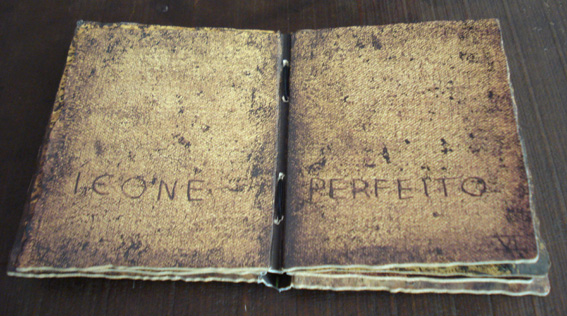 ICONE PERFEITO